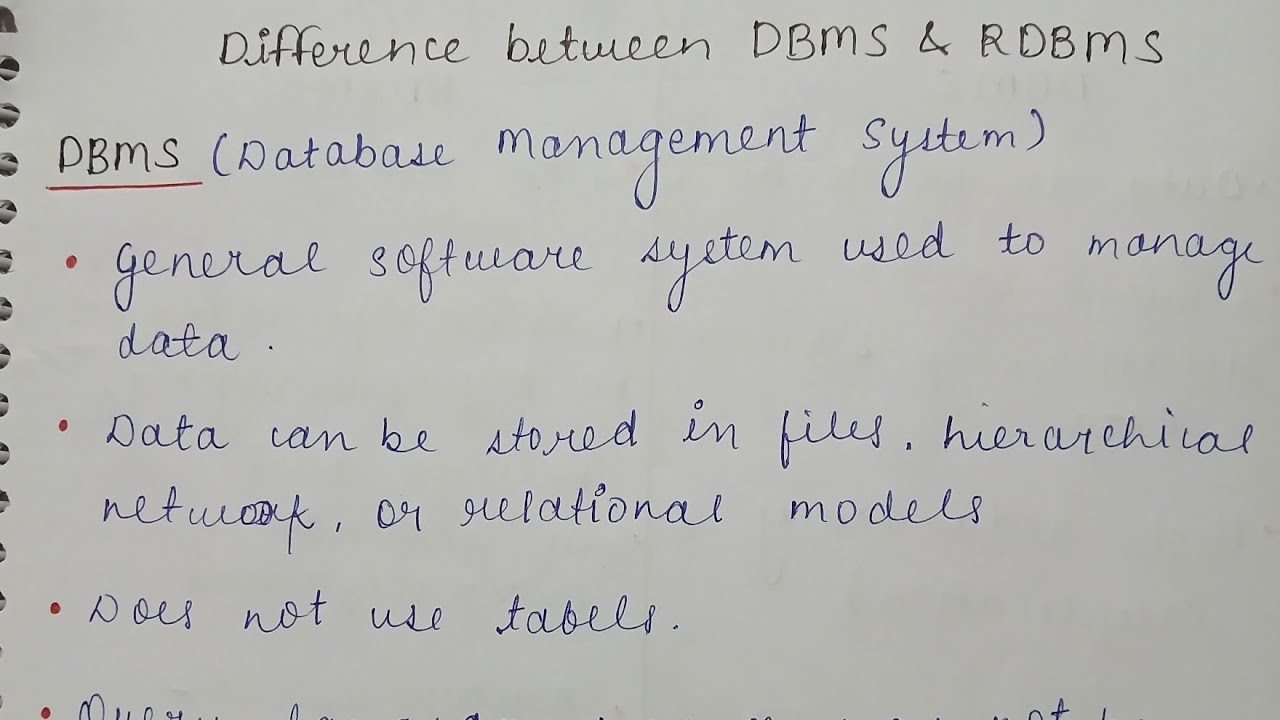 Difference between DBMS & RDBMS
DBMS (Database Management System)
• General software system used to manage
data.
• Data can be stored in files, hierarchical
network, or relational models
• Does not use tabels.
• Query not